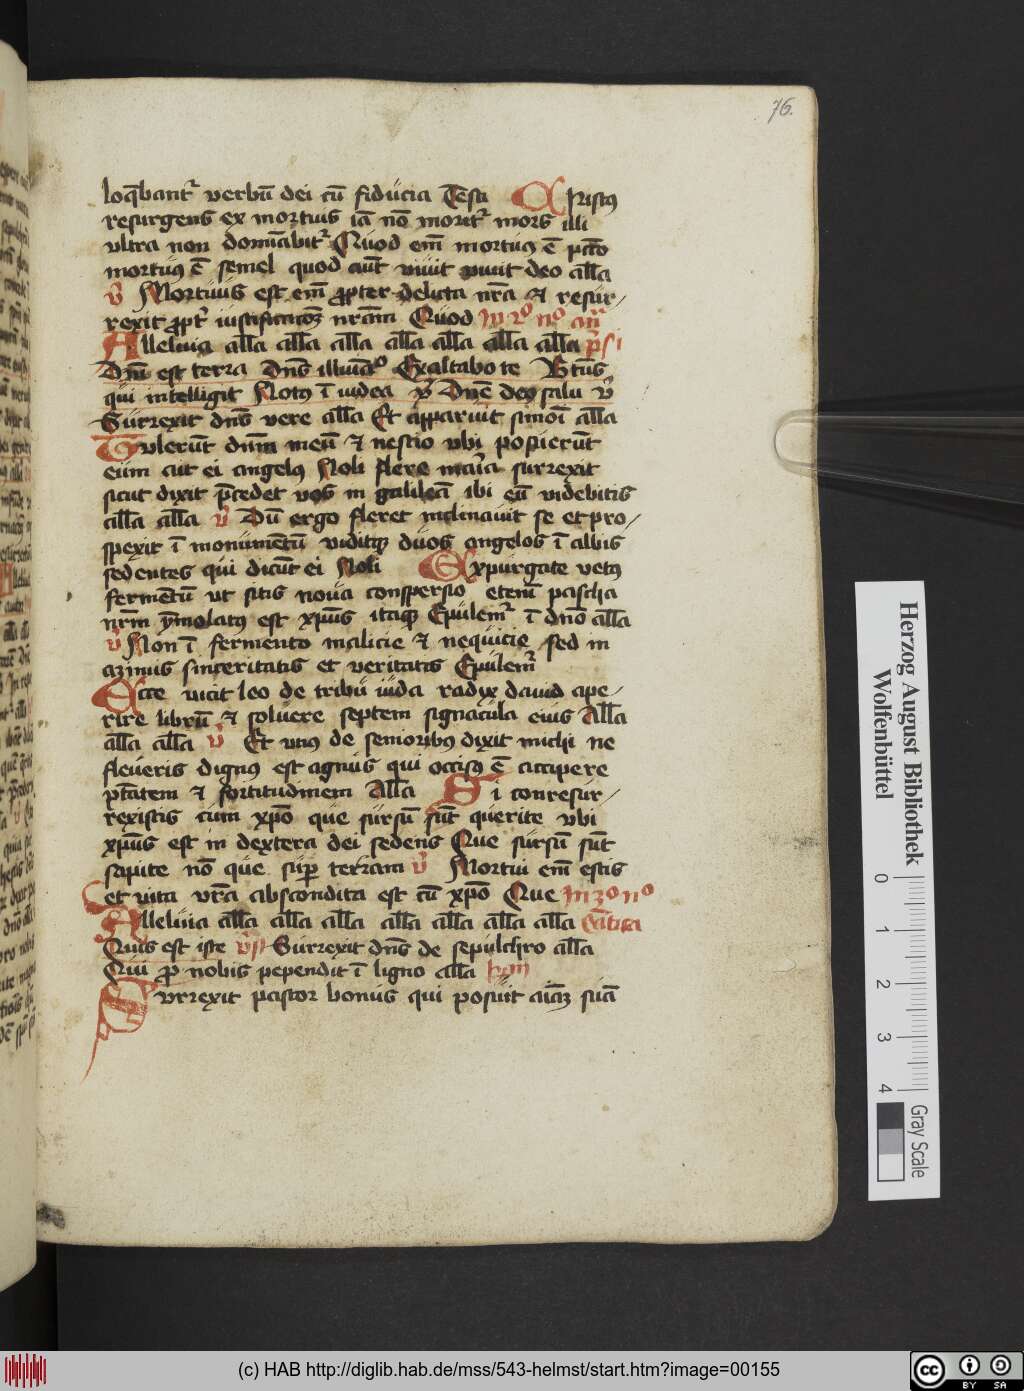 76.
loq̄bantᷣ verbū dei cū fiducia Testa Xpistꝰ
resurgens ex mortuis iā nō moritᷣ mors illi
vltra non domīabitᷣ Quod em̄ mortuꝰ ē pctō
mortuꝰ ē semel quod aūt viuit viuit deo all̄a
v̄ Mortuus est em̄ ꝓpter delicta nr̄a ⁊ resur/
rexit ꝓptᷣ iustificacōꝫ nrām Quod
Alleluia all̄a all̄a all̄a all̄a all̄a all̄a all̄a ps̄i
Dn̄i est terra Dn̄s illuīaᵒ Exaltabo te Btūs
qui intelligit Notꝰ ī iudea Dn̄e deꝰ salu v̄
Surrexit dn̄s vere all̄a Et apparuit simoī all̄a
Tvlerūt dnm̄ meū ⁊ nescio vbi posuerūt
eum ait ei angelꝰ Noli flere maria surrexit
sicut dixit p̄cedet vos in galileā ibi eū videbitis
all̄a all̄a v̄ Dū ergo fleret inclinauit se et pro/
spexit ī monumētū viditqꝫ duos angelos ī albis
sedentes qui dicūt ei Noli Expurgate vetꝰ
fermētū vt sitis noua conspersio etem̄ pascha
nrm̄ ymolatꝰ est xpūs itaqꝫ Epulemᷣ ī dnō all̄a
v̄ Non ī fermento malicie ⁊ nequicie sed in
azimis sinceritatis et veritatis Epulemᷣ
Ecce vicit leo de tribu iuda radix dauid ape/
rire librū ⁊ soluere septem signacula eius all̄a
all̄a all̄a v̄ Et vnus de senioribꝰ dixit michi ne
fleueris dignꝰ est agnus qui occisꝰ ē accipere
ptātem ⁊ fortitudinem all̄a Si conresur/
rexistis cum xpō que sursū sūt querite vbi
xpūs est in dextera dei sedens Que sursū sūt
sapite nō que suꝑ terram v̄ Mortui em̄ estis
et vita vrā abscondita est cū xpō Que
Alleluia all̄a all̄a all̄a all̄a all̄a all̄a all̄a Cātica
Quis est iste Surrexit dn̄s de sepulchro all̄a
Qui ꝓ nobis pependit ī ligno all̄a
Svrrexit pastor bonus qui posuit aīaꝫ suā
Herzog August Bibliothek
Wolfenbüttel
0 1 2 3 4 Gray Scale
(c) HAB http://diglib.hab.de/mss/543-helmst/start.htm?image=00155
cc BY SA